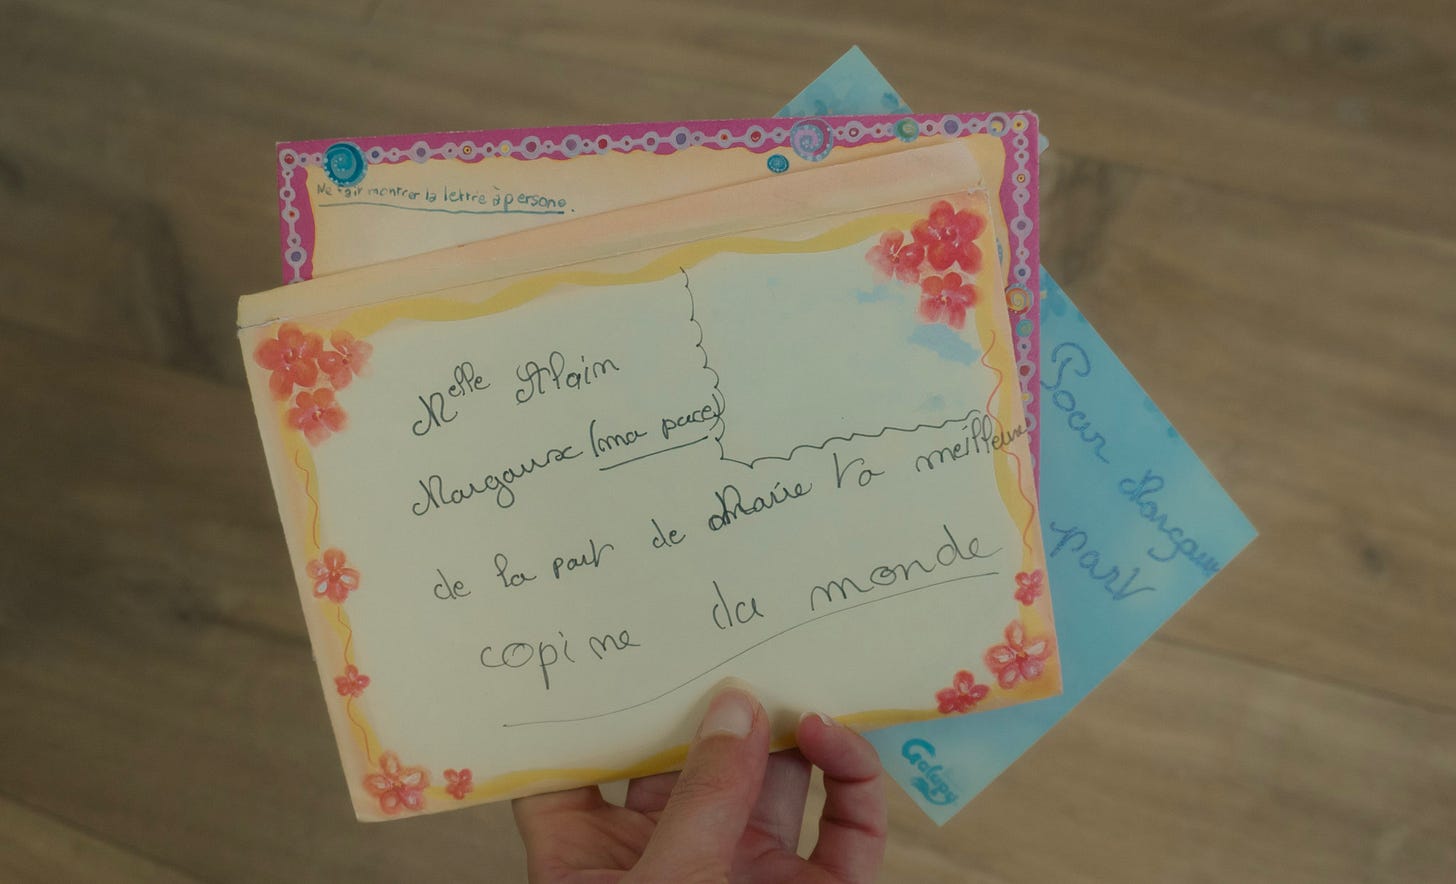 Ne fair montrer la lettre à persone.
Melle Alain
Margaux (ma puce)
de la part de Marie ta meilleure
copine du monde
Pour Margaux
part